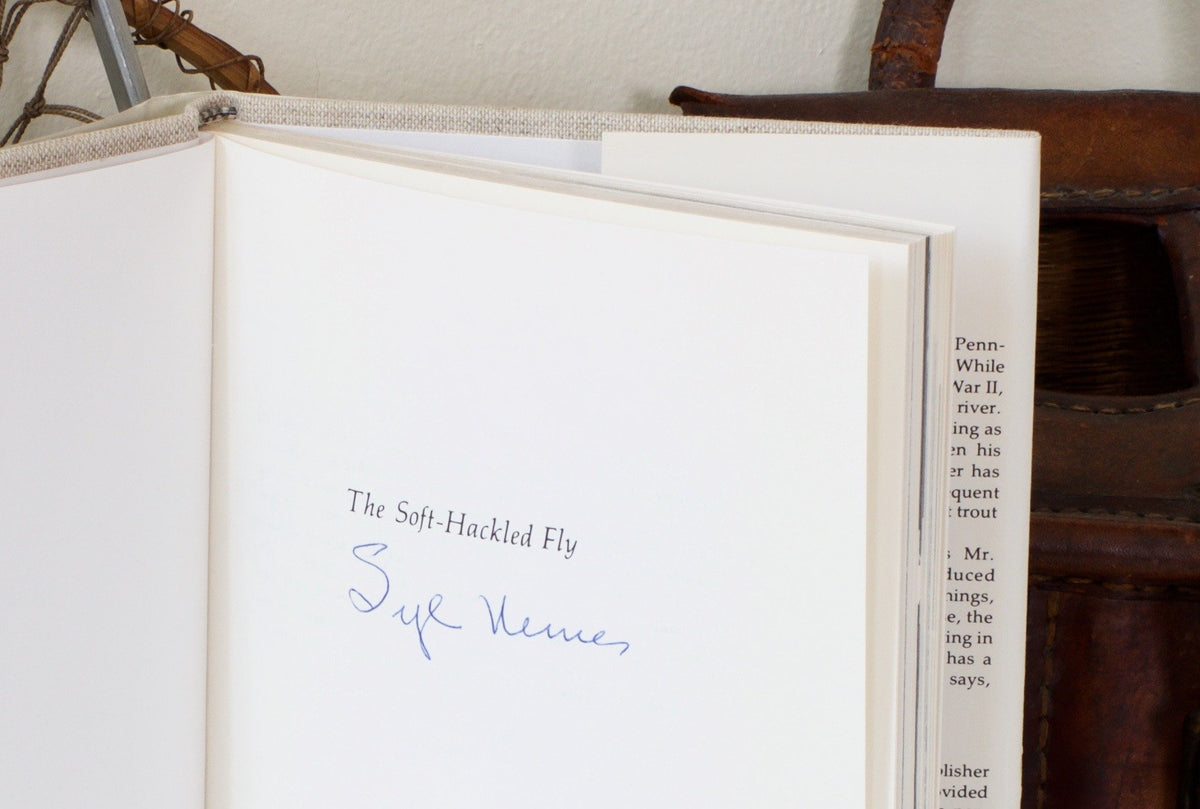 The Soft-Hackled Fly
Syl Nemes
Penn-
While
War II,
river.
ing as
en his
er has
equent
trout
Mr.
duced
nings,
e, the
ing in
has a
says,
blisher
ovided